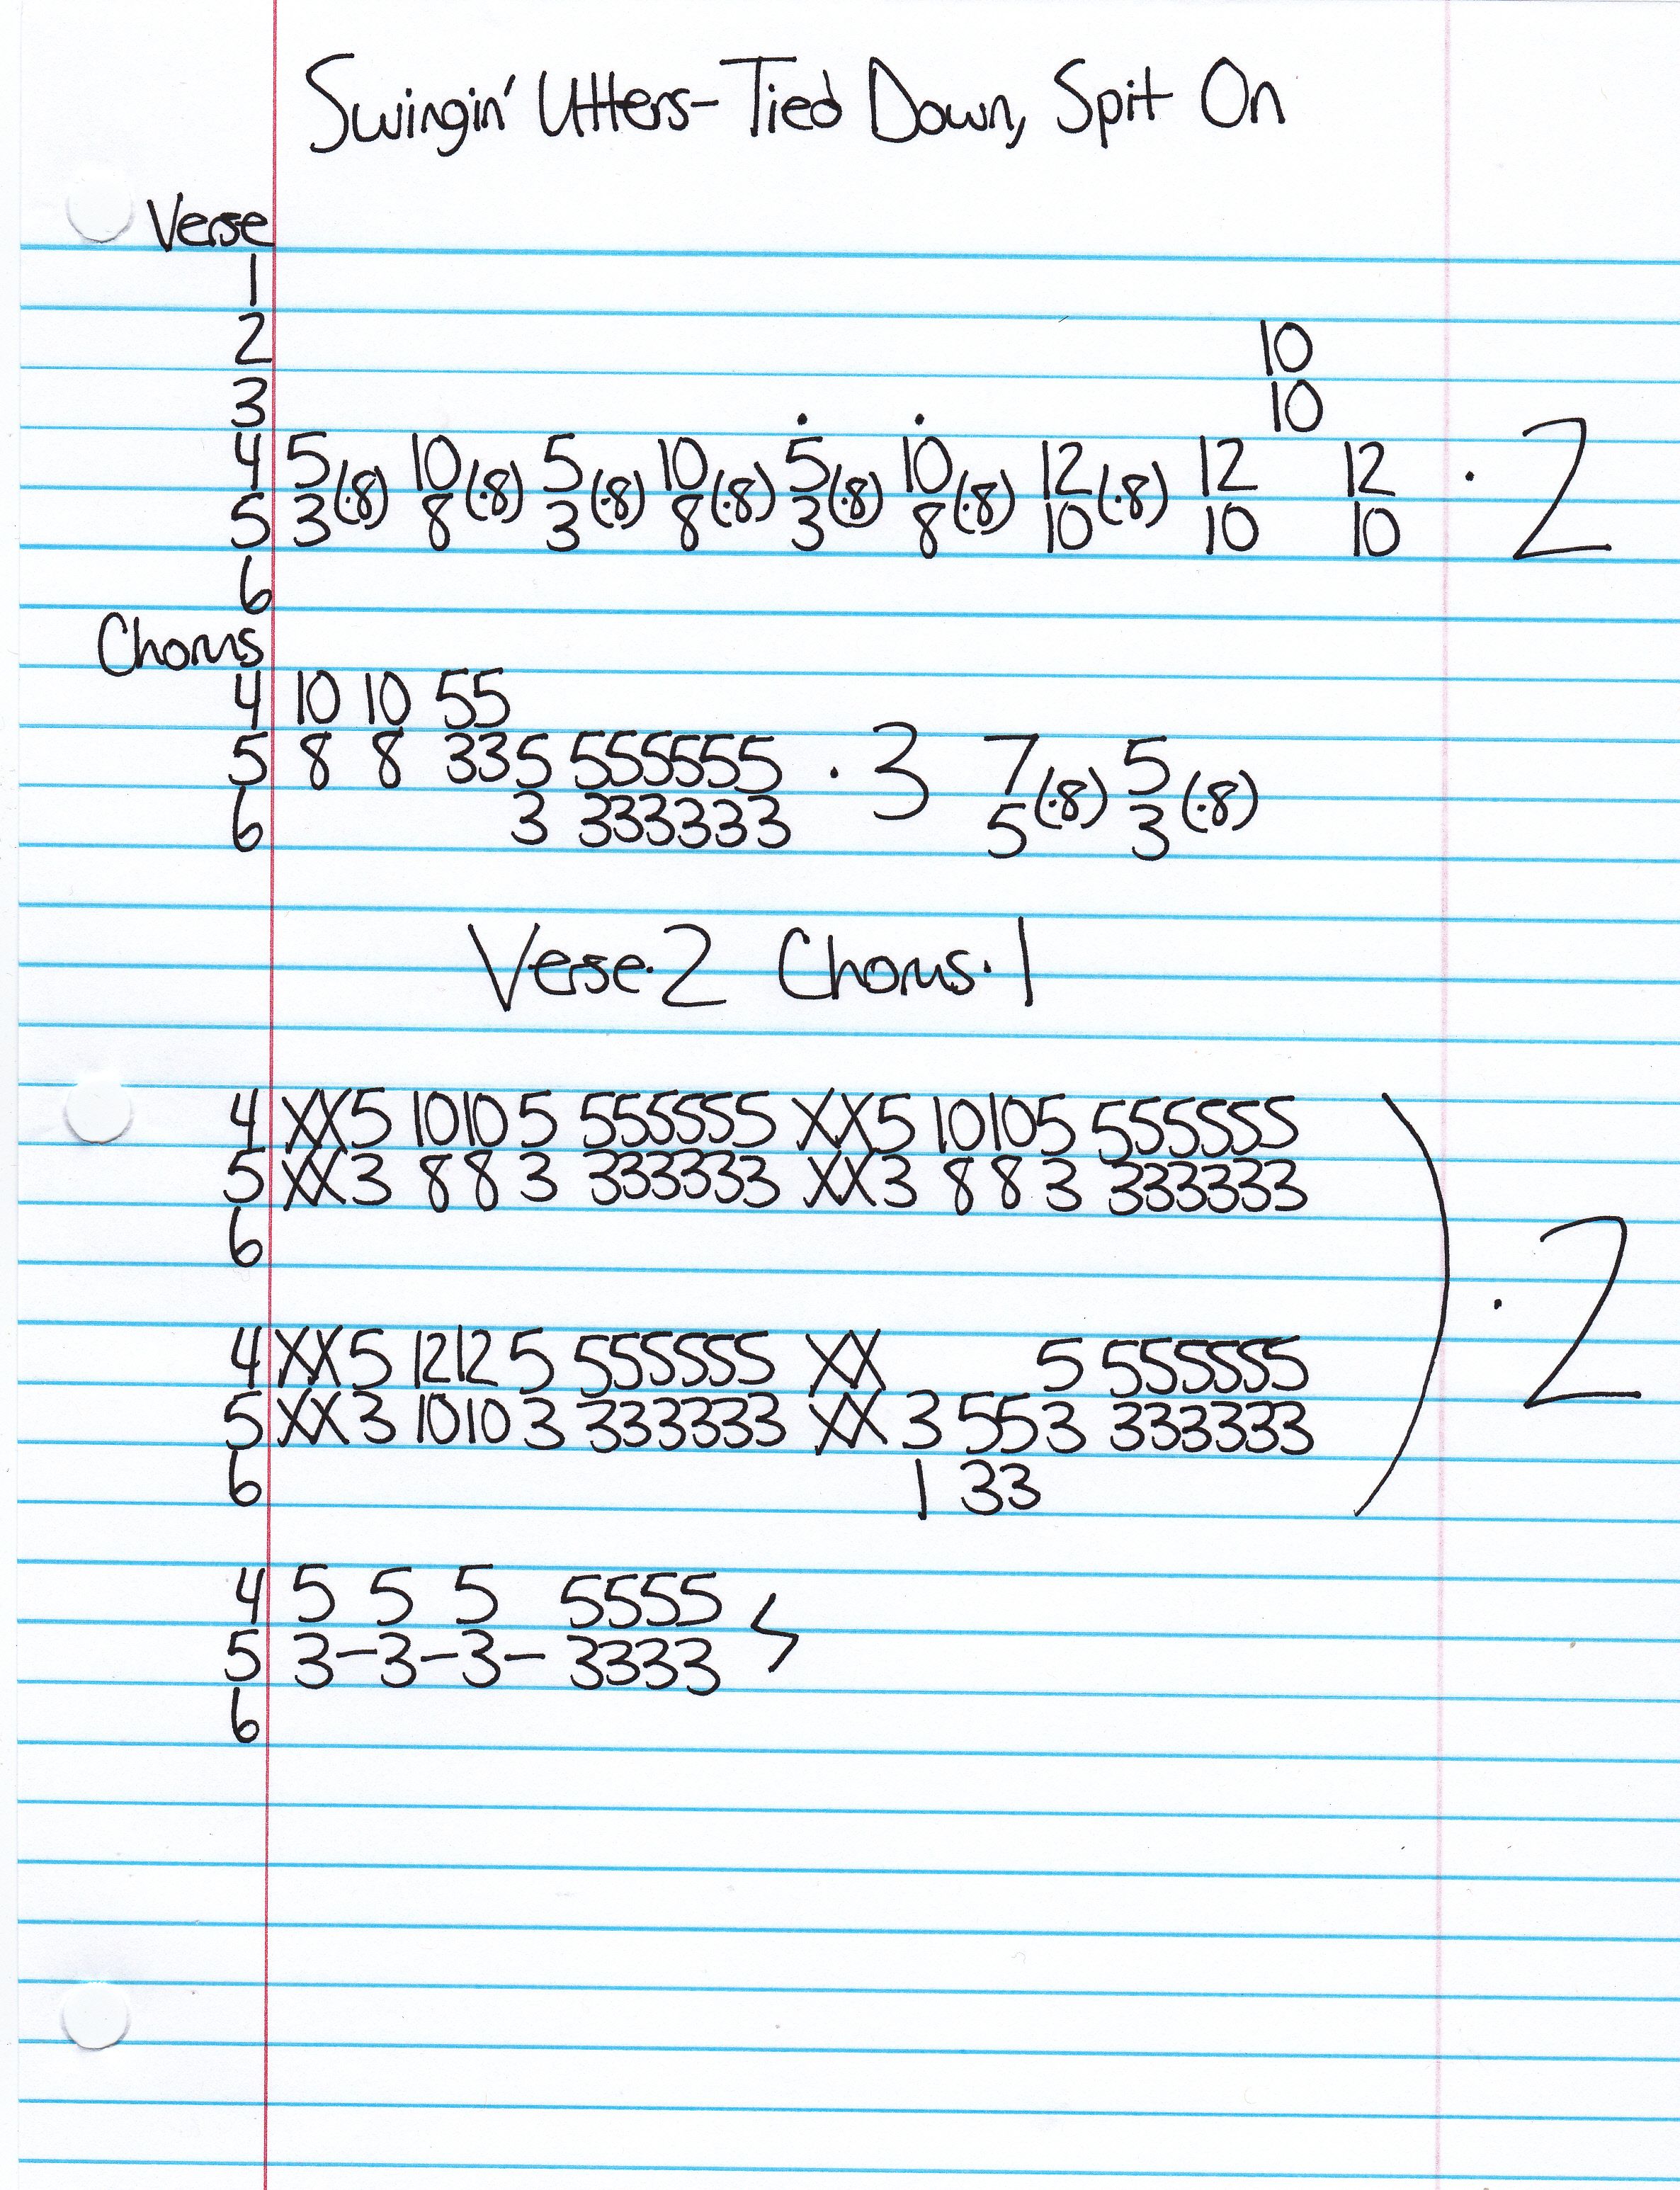 Swingin' Utters- Tied Down, Spit On
Verse
1
2 10
3 10
4 5 10 5 10 5 10 12 12 12
(·8) (·8) (·8) (·8) (·8) (·8) (·8) · 2
5 3 8 3 8 3 8 10 10 10
6
Chorus
4 10 10 55
5 8 8 335 555555 · 3 7 (·8) 5 (·8)
6 3 333333 5 3
Verse·2 Chorus·1
4 XX5 1010 5 555555 XX5 10105 555555
5 XX3 88 3 333333 XX3 8 8 3 333333
6
· 2
4 XX5 1212 5 555555 XX 5 555555
5 XX3 1010 3 333333 XX 3 553 333333
6 1 33
4 5 5 5 5555
5 3-3-3- 3333
6